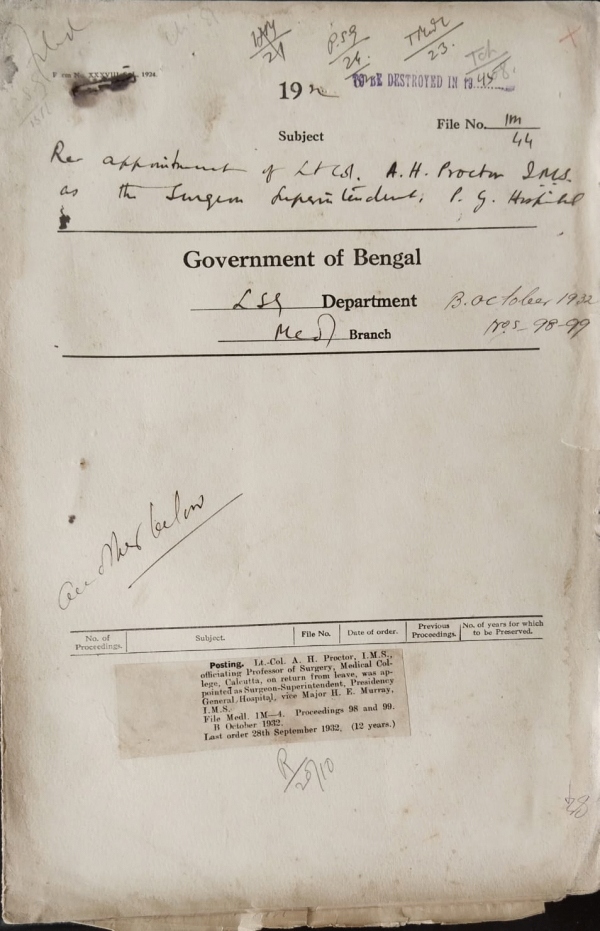 P.S.G
24.
23.
TO BE DESTROYED IN 19 45
1924.
19
File No. 1M
44
Subject
Re appointment of Lt Col. A. H. Proctor I.M.S.
as the Surgeon Superintendent, P. G. Hospital
Government of Bengal
LSG Department
B. October 1932
Medl Branch
Nos 98-99
another below
No. of Proceedings. Subject. File No. Date of order. Previous Proceedings. No. of years for which to be Preserved.
Posting. Lt.-Col. A. H. Proctor, I.M.S.,
officiating Professor of Surgery, Medical Col-
lege, Calcutta, on return from leave, was ap-
pointed as Surgeon-Superintendent, Presidency
General Hospital, vice Major H. E. Murray,
I.M.S.
File Medl. 1M—4. Proceedings 98 and 99.
B October 1932.
Last order 28th September 1932. (12 years.)